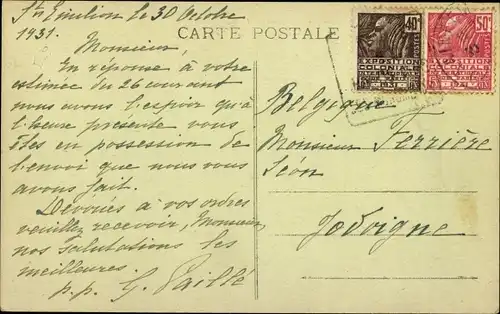 St Emilion le 30 Octobre
1931.
CARTE POSTALE
Monsieur,
En réponse à votre
estimée du 26 courant
nous avons l'espoir qu'à
l'heure présente vous
êtes en possession de
l'envoi que nous vous
avons fait.
Dévoués à vos ordres
veuillez recevoir, Monsieur,
nos salutations les
meilleures.
p.p. G. Paillé
40c
50c
POSTES
Belgique
Monsieur Ferrière
Léon
Jodoigne